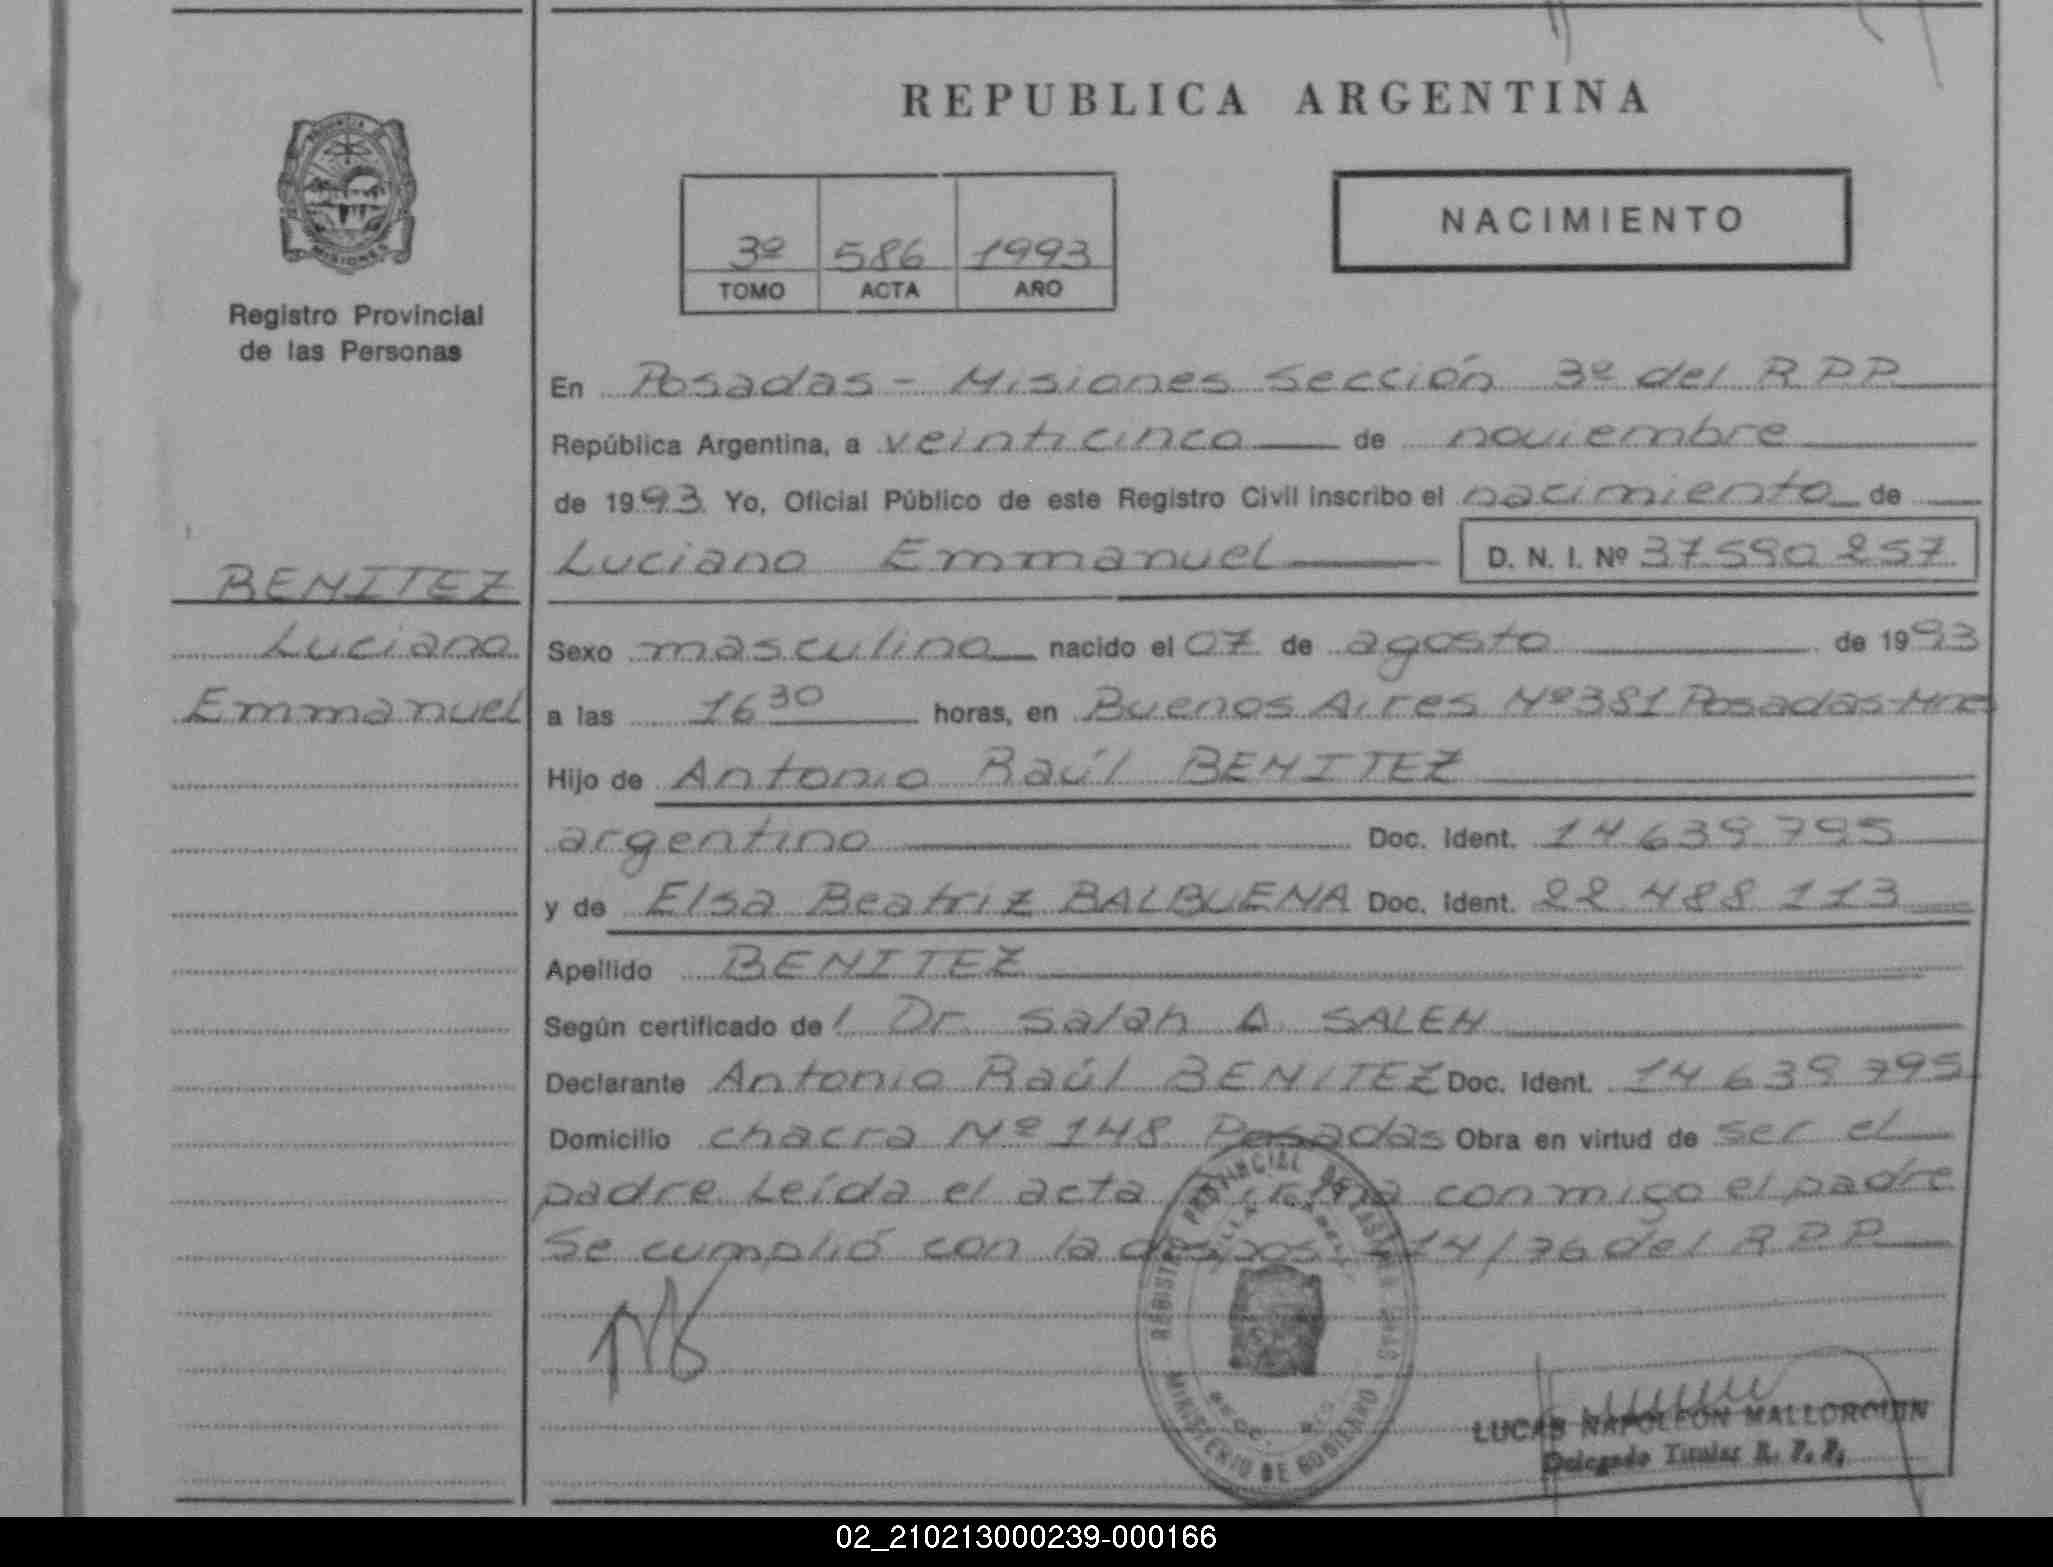 REPUBLICA ARGENTINA
PROVINCIA DE
MISIONES
Registro Provincial
de las Personas
3º 586 1993
TOMO ACTA AÑO
NACIMIENTO
En Posadas - Misiones Sección 3º del R P P
República Argentina, a veinticinco de noviembre
de 1993 Yo, Oficial Público de este Registro Civil inscribo el nacimiento de
Luciano Emmanuel D. N. I. Nº 37590257
BENITEZ
Luciano
Emmanuel
Sexo masculino nacido el 07 de agosto de 1993
a las 16 30 horas, en Buenos Aires Nº381 Posadas-Mnes
Hijo de Antonio Raúl BENITEZ
argentino Doc. Ident. 14 639 795
y de Elsa Beatriz BALBUENA Doc. Ident. 22 488 113
Apellido BENITEZ
Según certificado del Dr. Salah A. SALEH
Declarante Antonio Raúl BENITEZ Doc. Ident. 14 639 795
Domicilio chacra Nº 148 Posadas Obra en virtud de ser el
padre Leída el acta firma conmigo el padre
Se cumplió con la dispos. 14/76 del R P P
REGISTRO PROVINCIAL DE LAS PERSONAS
MINISTERIO DE GOBIERNO
LUCAS NAPOLEON MALLORQUIN
Delegado Titular R. P. P.
02_210213000239-000166